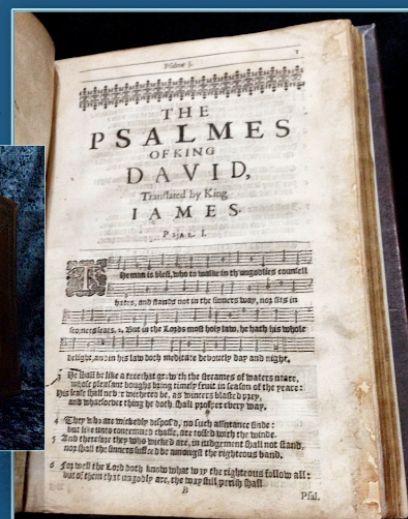 Psalme 1.
1
THE
PSALMES
OF KING
DAVID,
Translated by King
IAMES.
PSAL I.
The man is blest, who to walke in th'ungodlies counsell
hates, and stands not in the sinners way, nor sits in
scorners seats. 2. But in the Lords most holy law, he hath his whole
delight, and in his law doth meditate devoutly day and night.
3 He shall be like a tree that grow'th the streames of waters neare,
whose pleasant boughs bring timely fruit in season of the yeare:
His leafe shall never withered be, as winters blasted prey,
and whatsoever thing he doth shall prosper every way.
4 They who are wickedly dispos'd, no such assurance finde:
but like unto contemned chaffe, are toss'd with the winde.
5 And therefore they who wicked are, in judgement shall not stand,
nor shall the sinners suffred be amongst the righteous band.
6 For well the Lord doth know what way the righteous follow all:
but of them that ungodly are, the way still perish shall.
B
Psal.